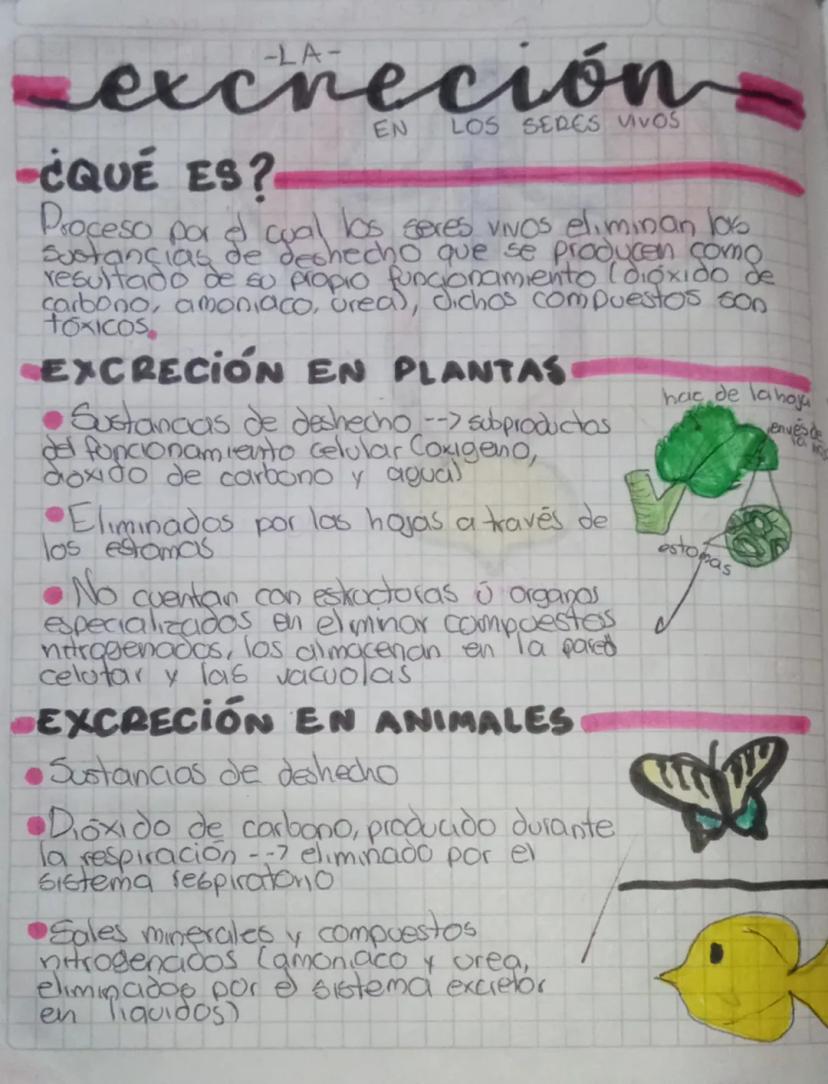 -LA-
excreción
EN LOS SERES VIVOS
¿QUÉ ES?
Proceso por el cual los seres vivos eliminan las
sustancias de deshecho que se producen como
resultado de su propio funcionamiento (dióxido de
carbono, amoniaco, urea), dichos compuestos son
tóxicos.
EXCRECIÓN EN PLANTAS
haz de la hoja
Sustancias de deshecho --> subproductos
del funcionamiento celular (oxigeno,
dioxido de carbono y agua)
envés de
la
Eliminados por las hojas a través de
los estomas
estomas
No cuentan con estructuras ú organos
especializados en eliminar compuestos
nitrogenados, los almacenan en la pared
celular y las vacuolas
EXCRECIÓN EN ANIMALES
Sustancias de deshecho
Dióxido de carbono, producido durante
la respiración --> eliminado por el
sistema respiratorio
Sales minerales y compuestos
nitrogenados (amoniaco y urea,
eliminados por el sistema excretor
en liquidos)